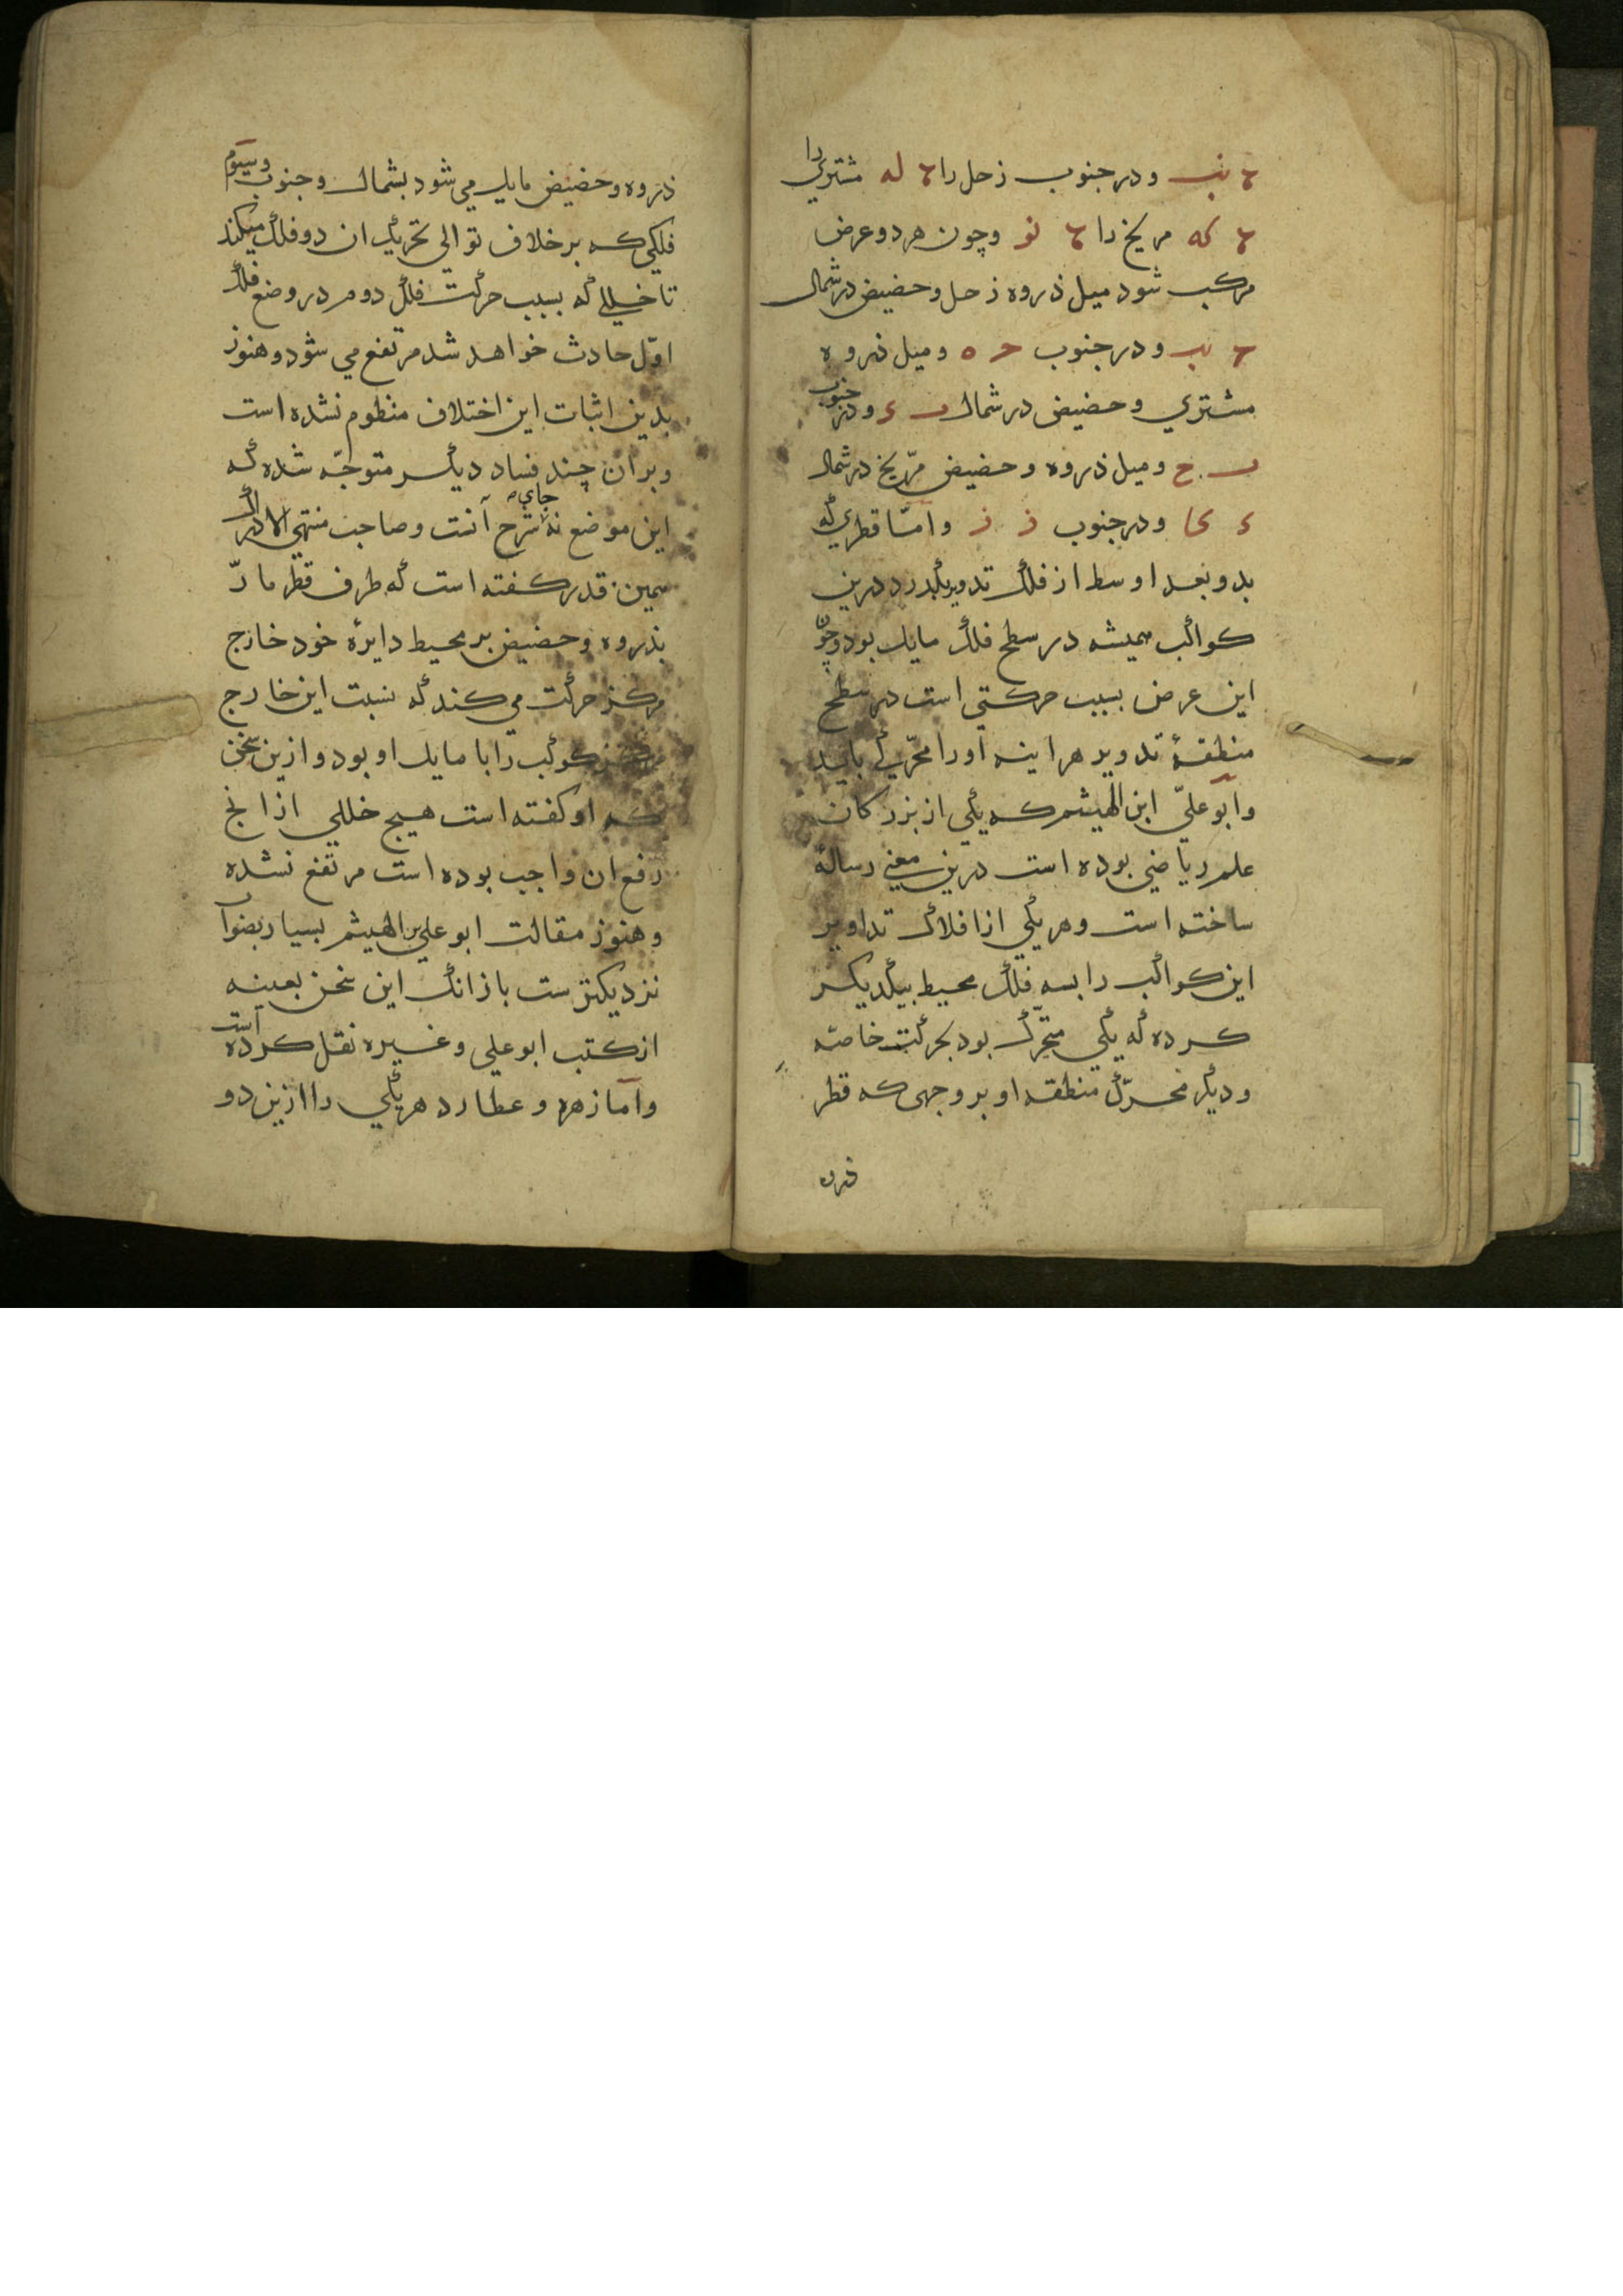 ٮب ودر جنوب زحل را له مشتری را
که مریخ را نو وچون هر دو عرض
مرکب شود میل ذروه زحل وحضیض در شمال
ودر جنوب ه ومیل ذروه
مشتري وحضیض در شمال ودر جنوب
ح ومیل ذروه وحضیض مرّیخ در شمال
ودر جنوب ز ز وامّا قطري که
بدو بعد اوسط از فلک تدویر بگذرد درین
کواکب همیشه در سطح فلک مایل بود وچون
این عرض بسبب حرکتي است در سطح
منطقهٔ تدویر هراینه اورا محرّکي باید
وابو عليّ ابن الهیثم که یکي از بزرکان
علم ریاضي بوده است درین معني رسالهٔ
ساخته است وهر یکي از افلاک تداویر
این کواکب را بسه فلک محیط بیکدیکر
کرده که یکي متحرّک بود بحرکت خاصّه
ودیکر محرّک منطقه او بر وجهی که قطر
ذروه
ذروه وحضیض مایل می شود بشمال وجنوب وسیوم
فلکی که بر خلاف توالي تحریک ان دو فلک میکند
تا خللي که بسبب حرکت فلک دوم در وضع فلک
اوّل حادث خواهد شد مرتفع مي شود وهنوز
بدین اثبات این اختلاف منظوم نشده است
وبران چند فساد دیکر متوجّه شده که
این موضع نه جای شرح آنست وصاحب منتهي الادراک
همین قدر کفته است که طرف قطر مارّ
بذروه وحضیض بر محیط دایرهٔ خود خارج
مرکز حرکت مي کند که نسبت این خارج
مرکز کوکب را با مایل او بود وازین سخن
که او کفته است هیچ خللي ازانچ
رفع ان واجب بوده است مرتفع نشده
وهنوز مقالت ابو علي بن الهیثم بسیار بصواب
نزدیکترست بازانک این سخن بعینه
از کتب ابو علي وغیره نقل کرده است
وامّا زهره وعطارد هر یکي را ازین دو